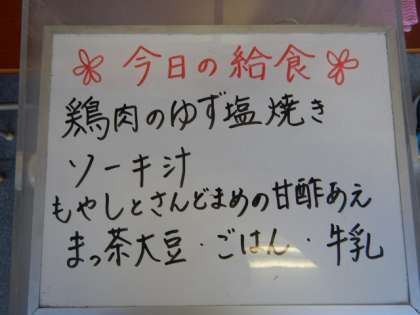 今日の給食
鶏肉のゆず塩焼き
ソーキ汁
もやしとさんどまめの甘酢あえ
まっ茶大豆・ごはん・牛乳